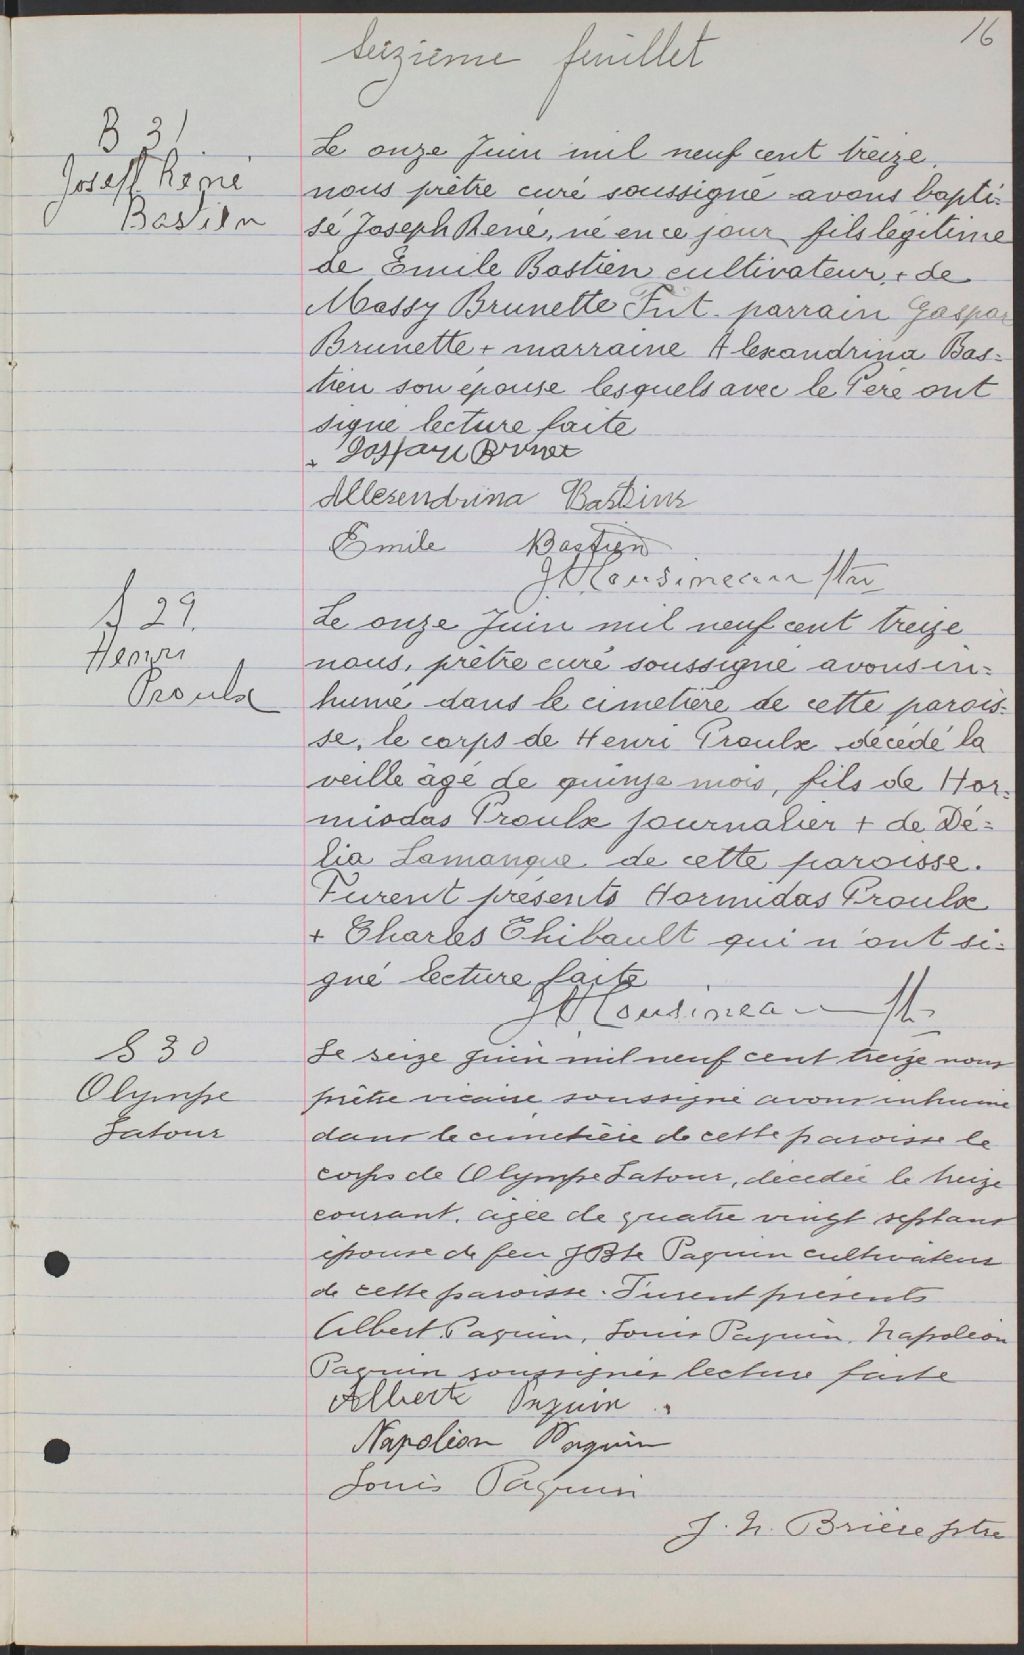 16
Seizième feuillet
B 31
Joseph Réné
Bastien
Le onze Juin mil neuf cent treize,
nous prêtre curé soussigné avons bapti=
sé Joseph René, né en ce jour fils légitime
de Emile Bastien cultivateur, + de
Massy Brunette Fut parrain Gaspar
Brunette + marraine Alexandrina Bas=
tien son épouse lesquels avec le Père ont
signé lecture faite
Brunet
Allexendrina Bastien
Emile Bastien
Cousineau Ptre
S 29.
Henri
Proulx
Le onze Juin mil neuf cent treize
nous, prêtre curé soussigné avons in=
humé dans le cimetière de cette parois=
se, le corps de Henri Proulx décédé la
veille âgé de quinze mois, fils de Hor=
misdas Proulx journalier + de Dé=
lia Lamarque de cette paroisse.
Furent présents Hormidas Proulx
+ Charles Thibault qui n'ont si=
gné lecture faite
Cousineau Ptr
S 30
Olympe
Latour
Le seize juin mil neuf cent treize nous
prêtre vicaire soussigné avons inhumé
dans le cimetière de cette paroisse le
corps de Olympe Latour, décédée le treize
courant, agée de quatre vingt sept ans
épouse de feu J Bte Paquin cultivateur
de cette paroisse. Furent présents
Albert Paquin, Louis Paquin, Napoléon
Paquin soussignés lecture faite
Albert Paquin
Napoléon Paquin
Louis Paquin
J. N. Brière ptre